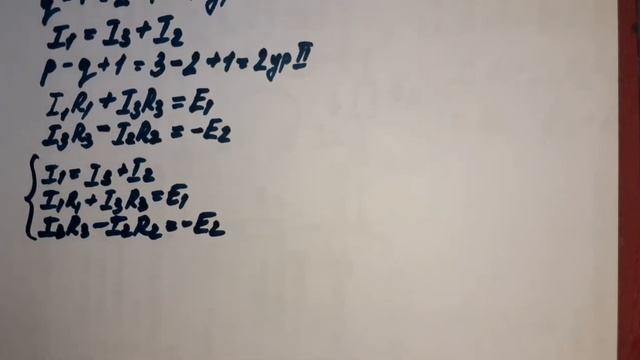 I₁ = I₃ + I₂
p - q + 1 = 3 - 2 + 1 = 2 ур II
I₁R₁ + I₃R₃ = E₁
I₃R₃ - I₂R₂ = -E₂
I₁ = I₃ + I₂
I₁R₁ + I₃R₃ = E₁
I₃R₃ - I₂R₂ = -E₂